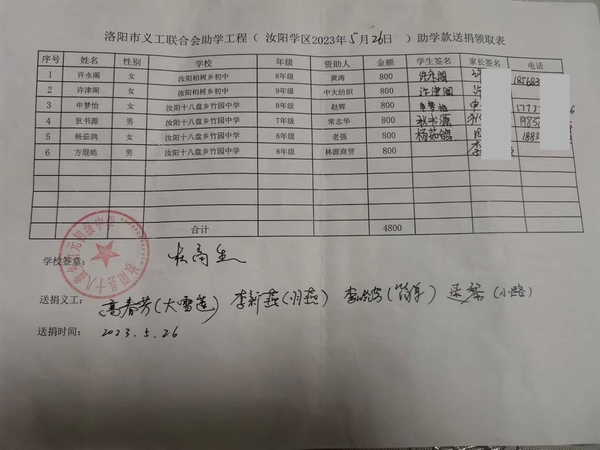 洛阳市义工联合会助学工程（ 汝阳学区2023年5月26日 ）助学款送捐领取表
序号 姓名 性别 学校 年级 资助人 金额 学生签名 家长签名 电话
1 许永阁 女 汝阳柏树乡初中 8年级 黄涛 800 许永阁 许
2 许津阁 女 汝阳柏树乡初中 9年级 中大纺织 800 许津阁 许
3 申梦怡 女 汝阳十八盘乡竹园中学 8年级 赵辉 800 申梦怡 申
4 狄书源 男 汝阳十八盘乡竹园中学 7年级 常志华 800 狄书源
5 杨茹鸽 女 汝阳十八盘乡竹园中学 8年级 老强 800 杨茹鸽
6 方琨皓 男 汝阳十八盘乡竹园中学 8年级 林源商贸 800
合计 4800
学校签章：
送捐义工： 高春芳(大雪莲) 李新燕(小燕) (小路)
送捐时间： 2023.5.26